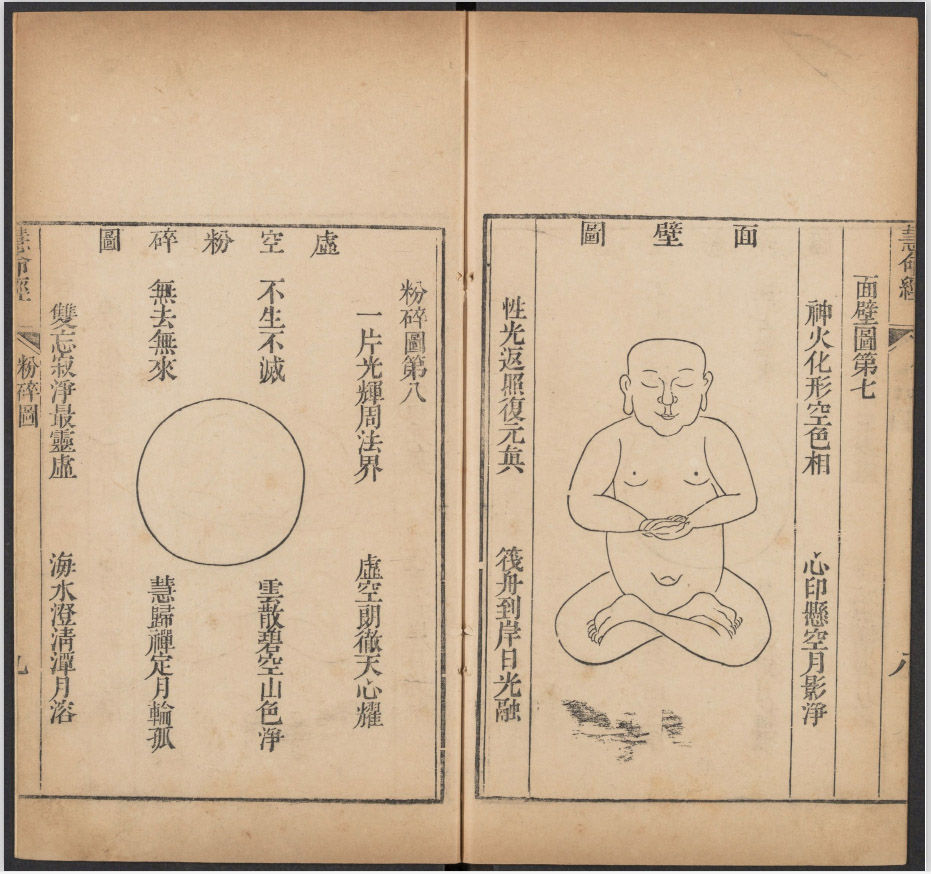 慧命經
八
面壁圖第七
面壁圖
神火化形空色相
心印懸空月影淨
性光返照復元真
筏舟到岸日光融
粉碎圖第八
虛空粉碎圖
一片光輝周法界
虛空朗徹天心耀
不生不滅
雲散碧空山色淨
無去無來
慧歸禪定月輪孤
雙忘寂淨最靈虛
海水澄清潭月溶
慧命經
粉碎圖
九